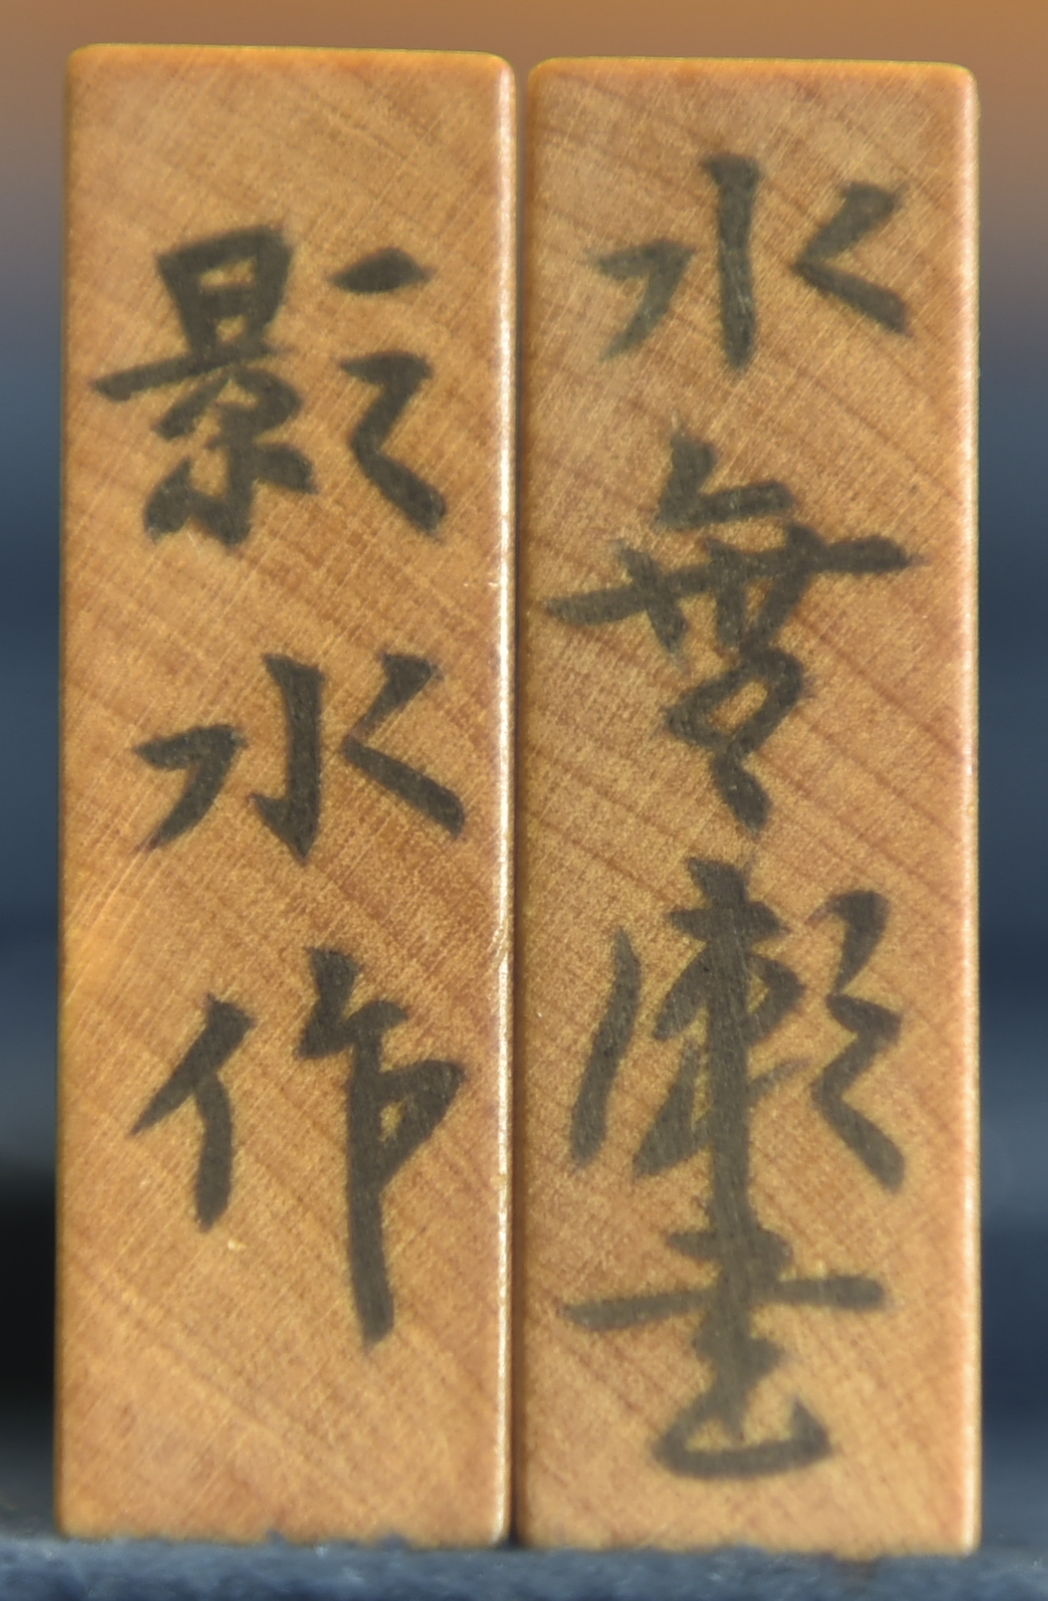 水無瀬書
影水作